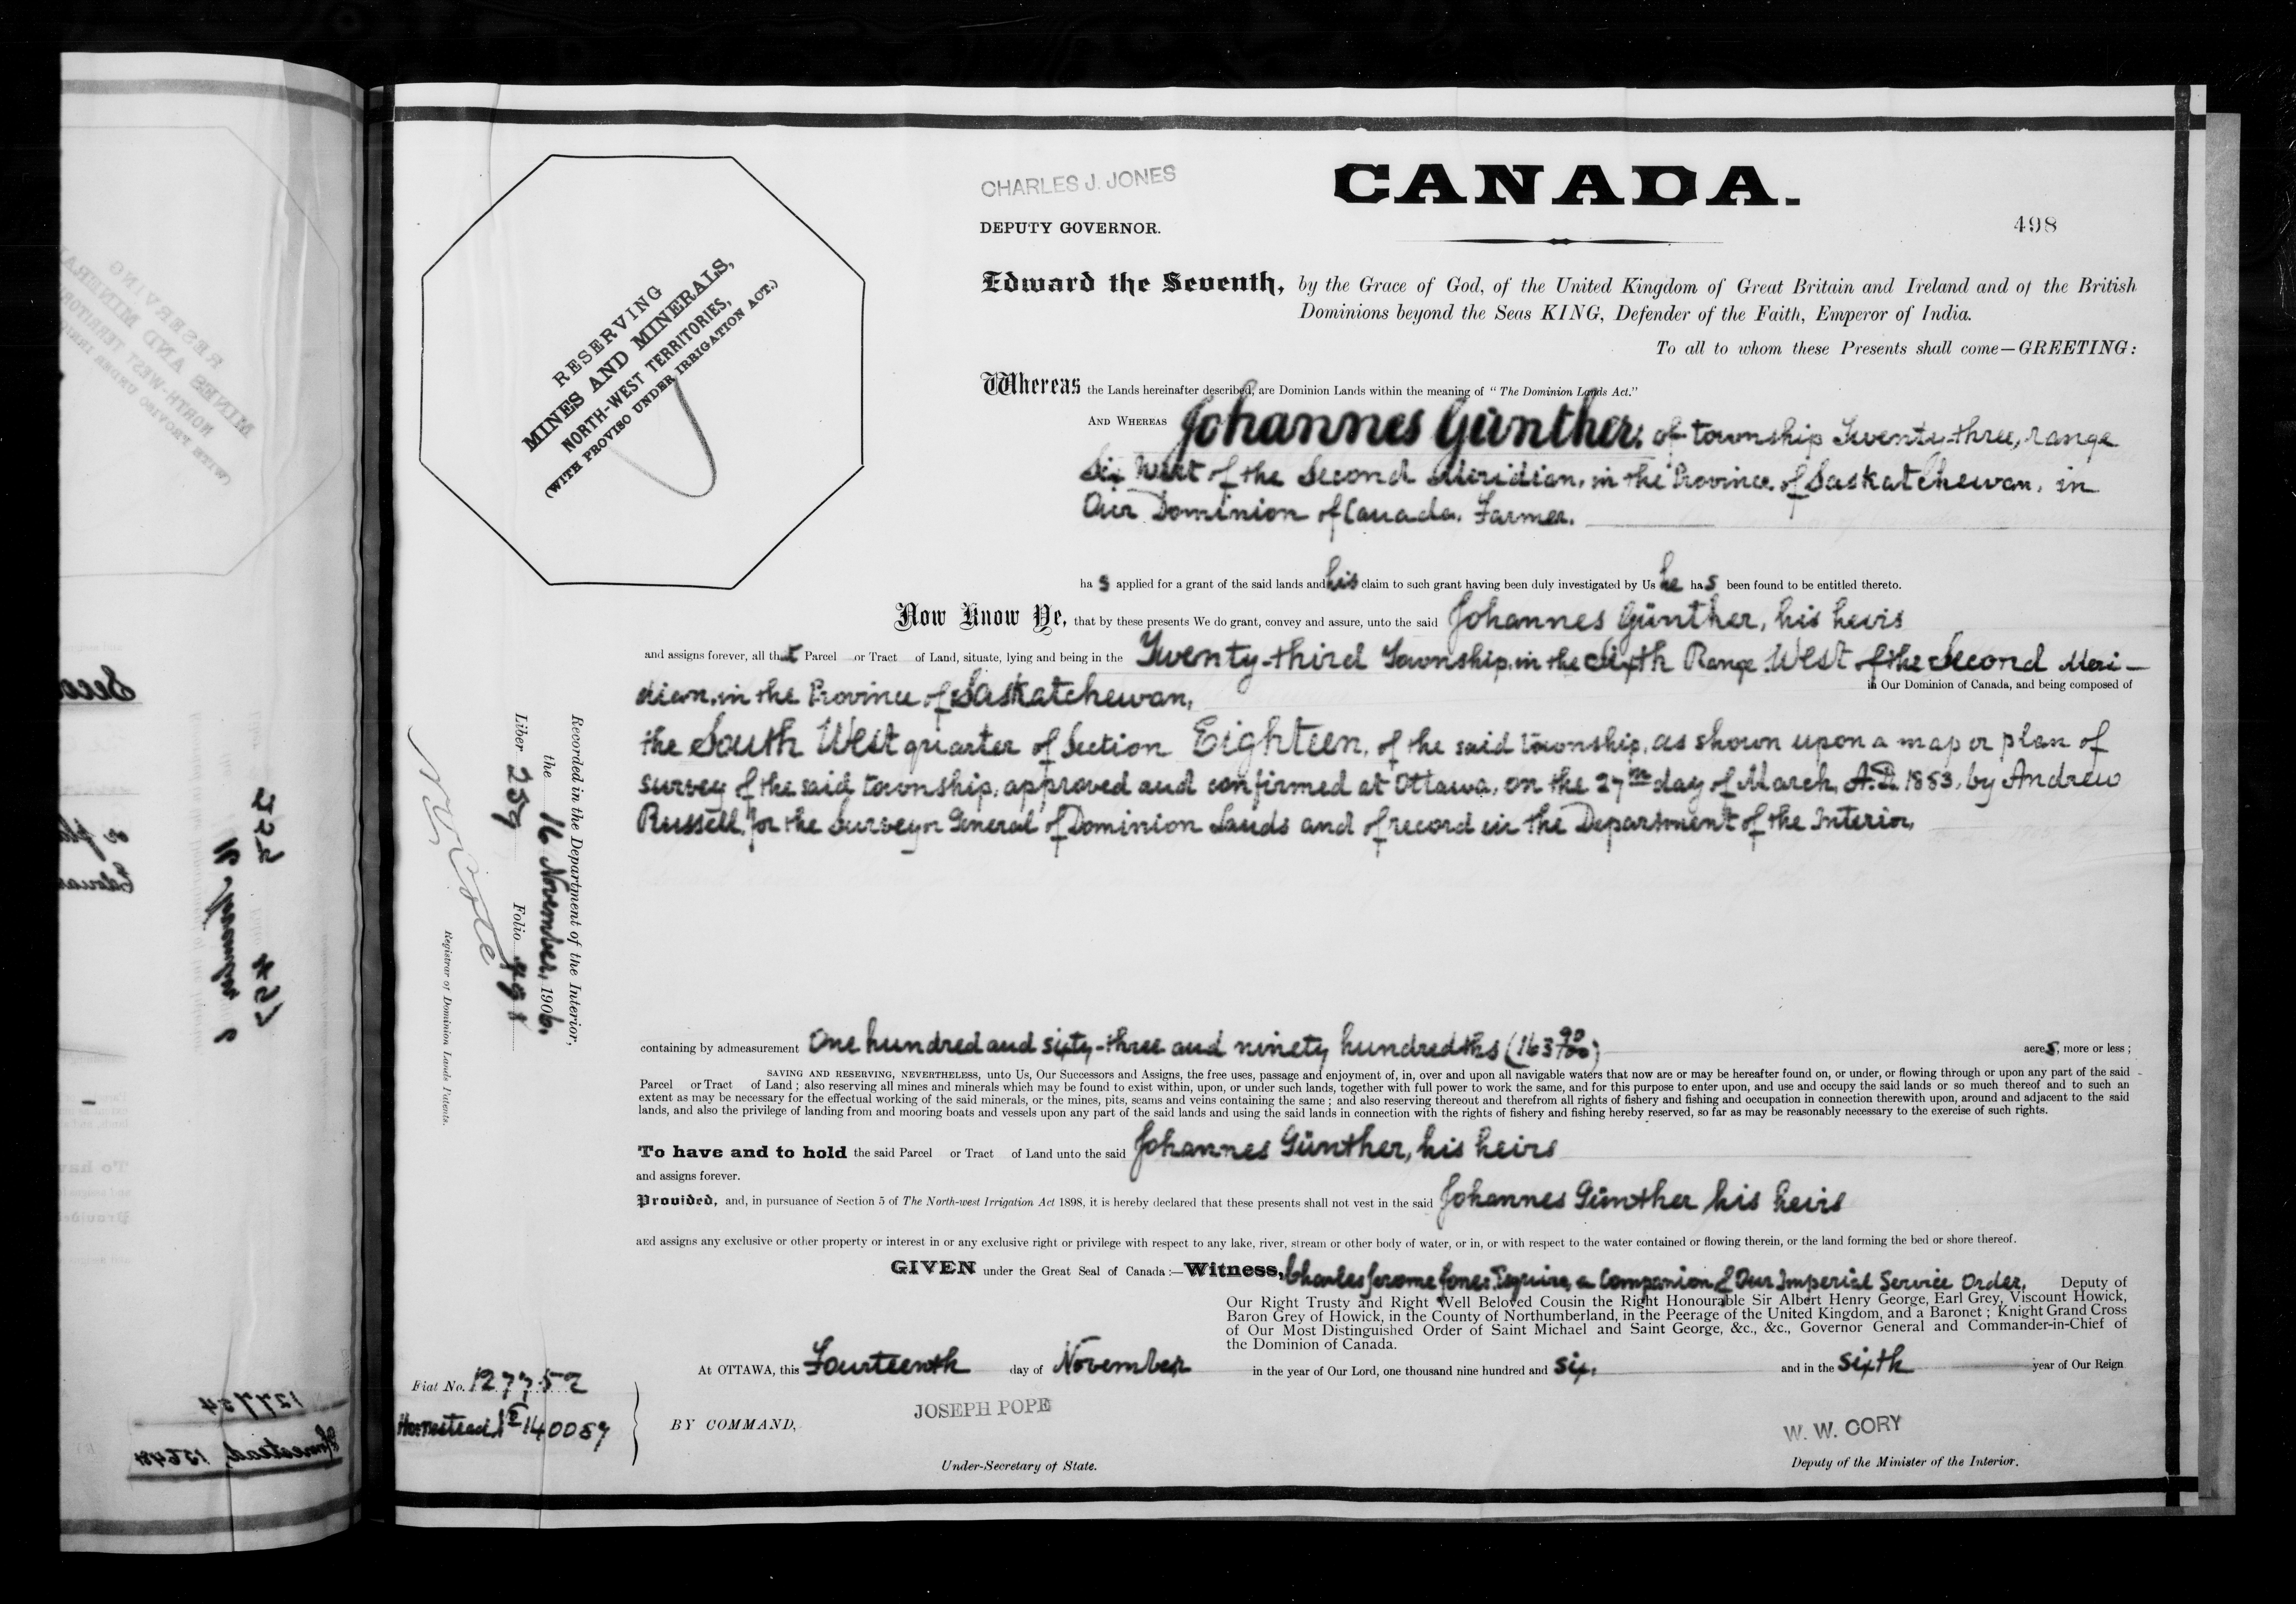 CHARLES J. JONES
DEPUTY GOVERNOR.
CANADA.
498
RESERVING
MINES AND MINERALS,
NORTH-WEST TERRITORIES,
(WITH PROVISO UNDER IRRIGATION ACT.)
Edward the Seventh, by the Grace of God, of the United Kingdom of Great Britain and Ireland and of the British
Dominions beyond the Seas KING, Defender of the Faith, Emperor of India.
To all to whom these Presents shall come—GREETING:
Whereas the Lands hereinafter described, are Dominion Lands within the meaning of "The Dominion Lands Act."
AND WHEREAS Johannes Günther, of township Twenty-three, range
Six West of the Second Meridian, in the Province of Saskatchewan, in
Our Dominion of Canada, Farmer.
ha s applied for a grant of the said lands and his claim to such grant having been duly investigated by Us he ha s been found to be entitled thereto.
Now Know Ye, that by these presents We do grant, convey and assure, unto the said Johannes Günther, his heirs
and assigns forever, all that Parcel or Tract of Land, situate, lying and being in the Twenty-third Township, in the Sixth Range West of the Second Meri-
dian, in the Province of Saskatchewan, in Our Dominion of Canada, and being composed of
the South West quarter of Section Eighteen, of the said township, as shown upon a map or plan of
survey of the said township, approved and confirmed at Ottawa, on the 27th day of March, A.D. 1883, by Andrew
Russell, for the Surveyor General of Dominion Lands and of record in the Department of the Interior,
Recorded in the Department of the Interior,
the 16 November, 1906.
Liber 259 Folio 491
N. O. Cote
Registrar of Dominion Lands Patents.
containing by admeasurement One hundred and sixty-three and ninety hundredths (163 90/100) acres, more or less;
SAVING AND RESERVING, NEVERTHELESS, unto Us, Our Successors and Assigns, the free uses, passage and enjoyment of, in, over and upon all navigable waters that now are or may be hereafter found on, or under, or flowing through or upon any part of the said
Parcel or Tract of Land; also reserving all mines and minerals which may be found to exist within, upon, or under such lands, together with full power to work the same, and for this purpose to enter upon, and use and occupy the said lands or so much thereof and to such an
extent as may be necessary for the effectual working of the said minerals, or the mines, pits, seams and veins containing the same; and also reserving thereout and therefrom all rights of fishery and fishing and occupation in connection therewith upon, around and adjacent to the said
lands, and also the privilege of landing from and mooring boats and vessels upon any part of the said lands and using the said lands in connection with the rights of fishery and fishing hereby reserved, so far as may be reasonably necessary to the exercise of such rights.
To have and to hold the said Parcel or Tract of Land unto the said Johannes Günther, his heirs
and assigns forever.
Provided, and, in pursuance of Section 5 of The North-west Irrigation Act 1898, it is hereby declared that these presents shall not vest in the said Johannes Günther his heirs
and assigns any exclusive or other property or interest in or any exclusive right or privilege with respect to any lake, river, stream or other body of water, or in, or with respect to the water contained or flowing therein, or the land forming the bed or shore thereof.
GIVEN under the Great Seal of Canada:—Witness, Charles Jerome Jones, Esquire, a Companion of Our Imperial Service Order, Deputy of
Our Right Trusty and Right Well Beloved Cousin the Right Honourable Sir Albert Henry George, Earl Grey, Viscount Howick,
Baron Grey of Howick, in the County of Northumberland, in the Peerage of the United Kingdom, and a Baronet; Knight Grand Cross
of Our Most Distinguished Order of Saint Michael and Saint George, &c., &c., Governor General and Commander-in-Chief of
the Dominion of Canada.
At OTTAWA, this Fourteenth day of November in the year of Our Lord, one thousand nine hundred and six, and in the sixth year of Our Reign
Fiat No. 127752
Homestead 140089
BY COMMAND,
JOSEPH POPE
Under-Secretary of State.
W. W. CORY
Deputy of the Minister of the Interior.